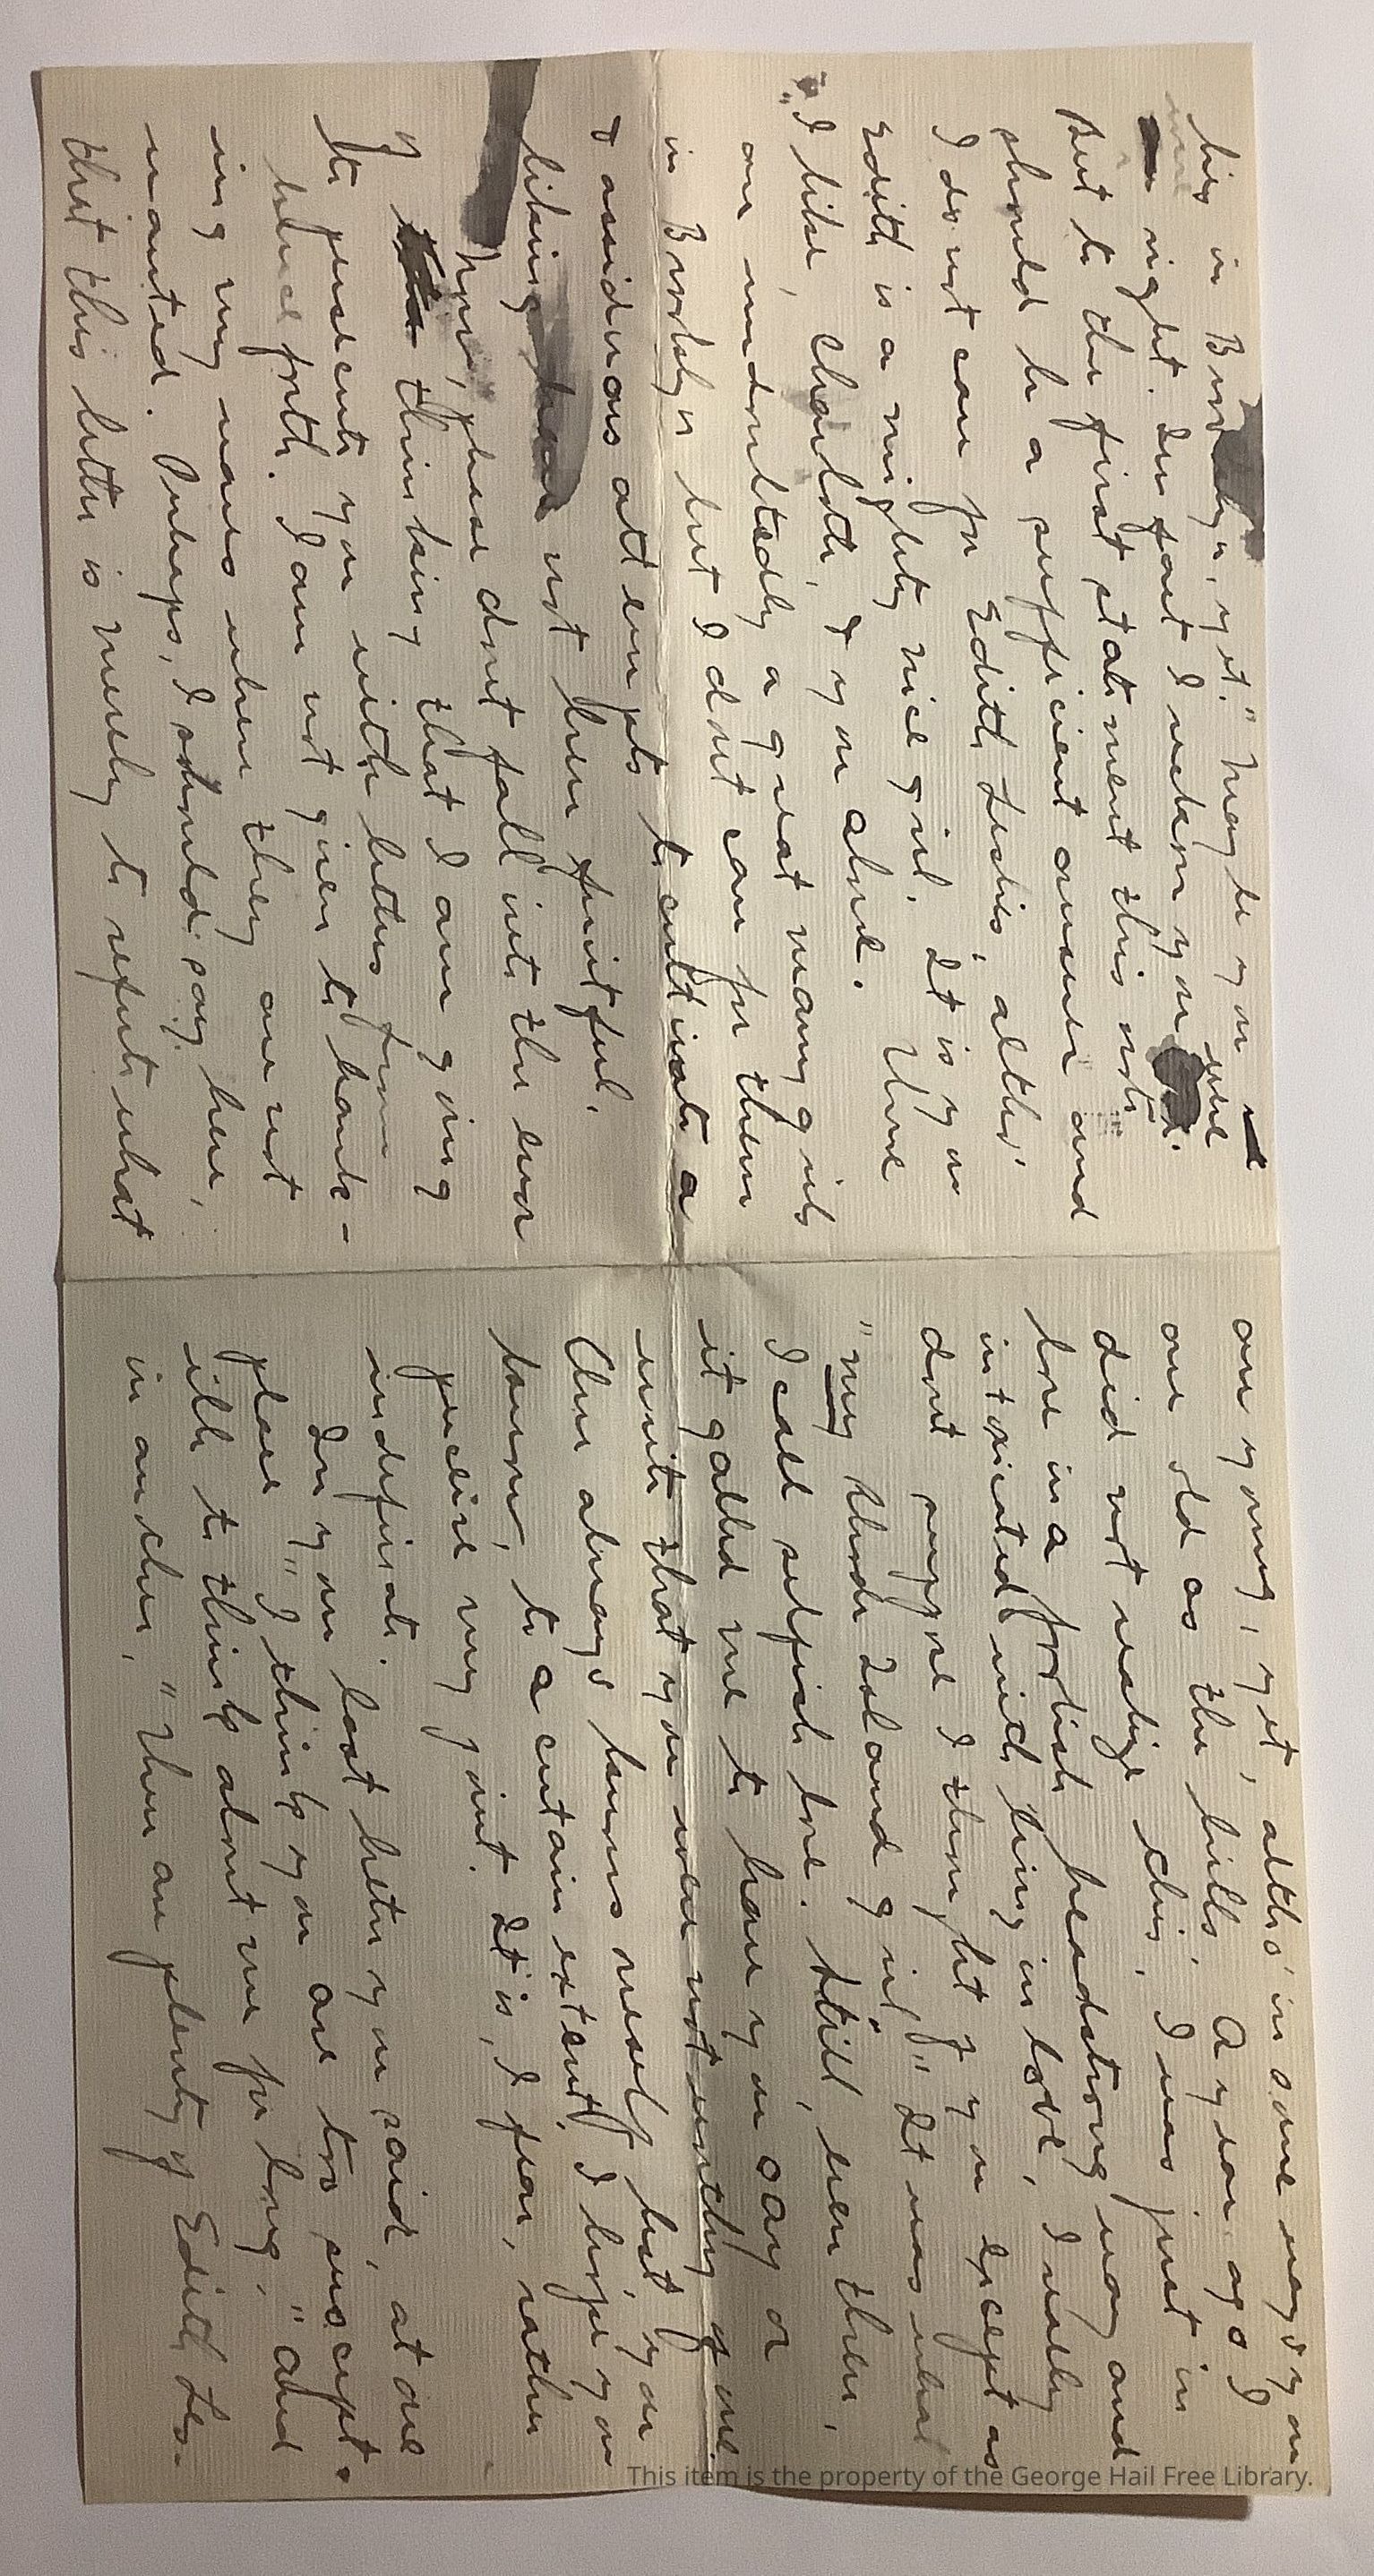 are young, yet, altho' in some ways you
are old as the hills. A year ago I
did not realize this, I was just in
love in a foolish headstrong way and
intoxicated with being in love, I really
dont suppose I thought of you except as
"my Rhode Island girl" It was what
I call selfish love. Still, even then,
it galled me to have you say or
write that you were not worthy of me.
One always knows oneself best, you
know, to a certain extent, I hope you
perceive my point. It is, I fear, rather
indefinite.
In your last letter you said, at one
place "I think you are too suscept-
ible to think about me for long," and
in another, "there are plenty of Edith Les-
lies in Brooklyn, yet." Maybe you
were
right. In fact I reckon you
But to the first statement this note
should be a sufficient answer and
I do not care for Edith Leslies, altho'
Edith is a mighty nice girl. It is you
I like, Charlotte, & you alone. There
are undoubtedly a great many girls
in Brooklyn but I dont care for them
& assiduous attempts to cultivate a
liking have not been fruitful.
Now, please dont fall into the error
of thinking that I am going
to persecute you with letters from
hence forth. I am not given to hawk-
ing my wares when they are not
wanted. Perhaps, I should say here,
that this letter is merely to refute what
This item is the property of the George Hail Free Library.